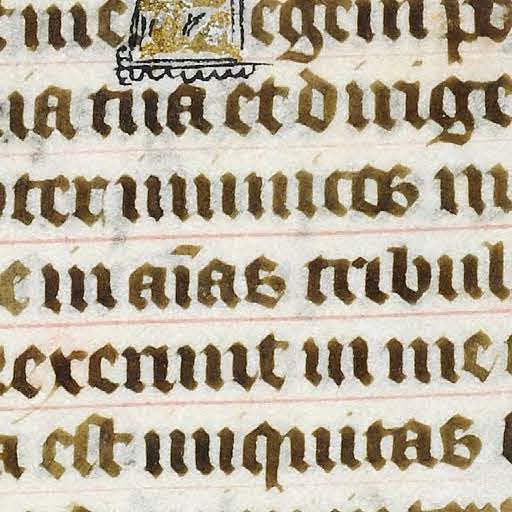 me Legem po
uia tua et dirige
pter inimicos m
e in aīas tribul
rexerunt in me
a est iniquitas